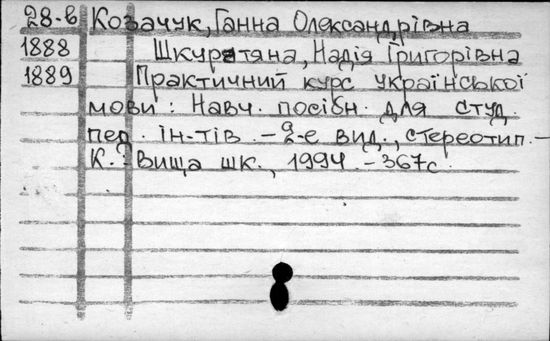 28-в Козачук, Ганна Олександрівна
1888 Шкуратяна, Надія Григорівна
1889 Практичний курс української
мови: Навч. посібн. для студ.
пед. ін-тів. - 2-е вид., стереотип. -
К.: Вища шк., 1994. - 367с.